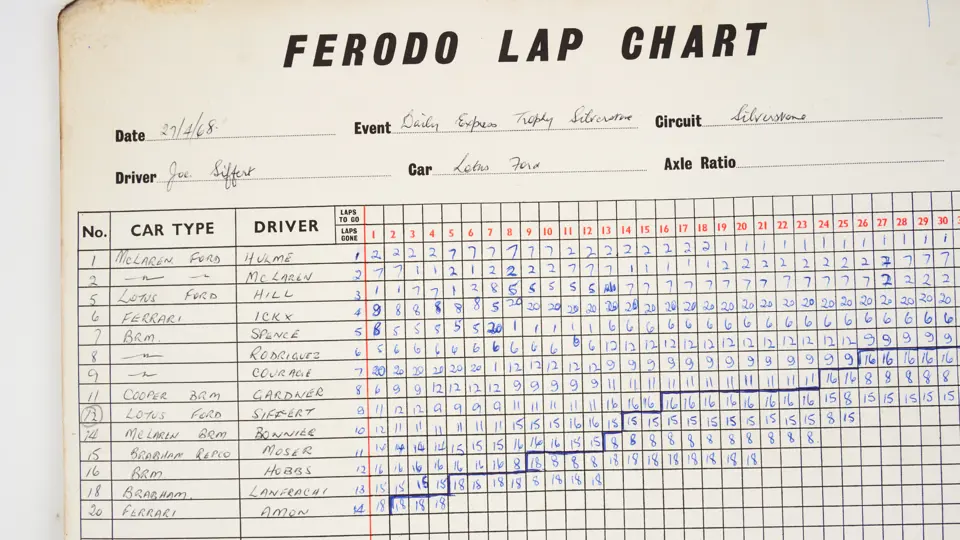 FERODO LAP CHART
Date 27/4/68. Event Daily Express Trophy Silverstone Circuit Silverstone
Driver Joe Siffert Car Lotus Ford Axle Ratio
No. CAR TYPE DRIVER LAPS TO GO
LAPS GONE 1 2 3 4 5 6 7 8 9 10 11 12 13 14 15 16 17 18 19 20 21 22 23 24 25 26 27 28 29 30
1 McLAREN FORD HULME 1 2 2 2 2 7 7 7 7 7 7 2 2 2 2 2 2 2 2 1 1 1 1 1 1 1 1 1 1 1 1
2 McLAREN 2 7 7 1 1 2 1 2 2 2 2 7 7 7 1 1 1 1 2 2 2 2 2 2 2 2 7 7 7
5 LOTUS FORD HILL 3 1 1 7 7 1 2 8 5 5 5 5 5 7 7 7 7 7 7 7 7 7 7 7 7 7 2 2 2
6 FERRARI ICKX 4 9 8 8 8 8 8 5 20 20 20 20 20 20 20 20 20 20 20 20 20 20 20 20 20 20 20 20 20 20
7 BRM. SPENCE 5 8 5 5 5 5 5 20 1 1 1 1 1 6 6 6 6 6 6 6 6 6 6 6 6 6 6 6 6 6 6
8 RODRIGUEZ 6 5 6 6 6 6 6 6 6 6 6 6 12 12 12 12 12 12 12 12 12 12 12 12 12 9 9 9 9 9
9 COURAGE 7 20 20 20 20 20 20 1 12 12 12 12 12 9 9 9 9 9 9 9 9 9 9 9 9 9 16 16 16 16 16
11 COOPER BRM GARDNER 8 6 9 9 12 12 12 12 9 9 9 9 9 11 11 11 11 11 11 11 11 11 11 11 16 16 8 8 8 8 8
12 LOTUS FORD SIFFERT 9 11 12 12 9 9 9 9 11 11 11 11 11 16 16 16 16 16 16 16 16 16 16 16 15 8 15 15 15 15 15
14 McLAREN BRM BONNIER 10 12 11 11 11 11 11 11 15 15 15 16 16 15 15 15 15 15 15 15 15 15 15 15 8 15
15 BRABHAM REPCO MOSER 11 14 14 14 14 15 15 15 16 16 16 15 15 8 8 8 8 8 8 8 8 8 8 8
16 BRM. HOBBS 12 16 16 16 16 16 16 16 8 18 8 8 8 18 18 18 18 18 18 18 18
18 BRABHAM. LANFRACHI 13 15 15 15 18 18 18 18 8 18 18 18
20 FERRARI AMON 14 18 18 18 18